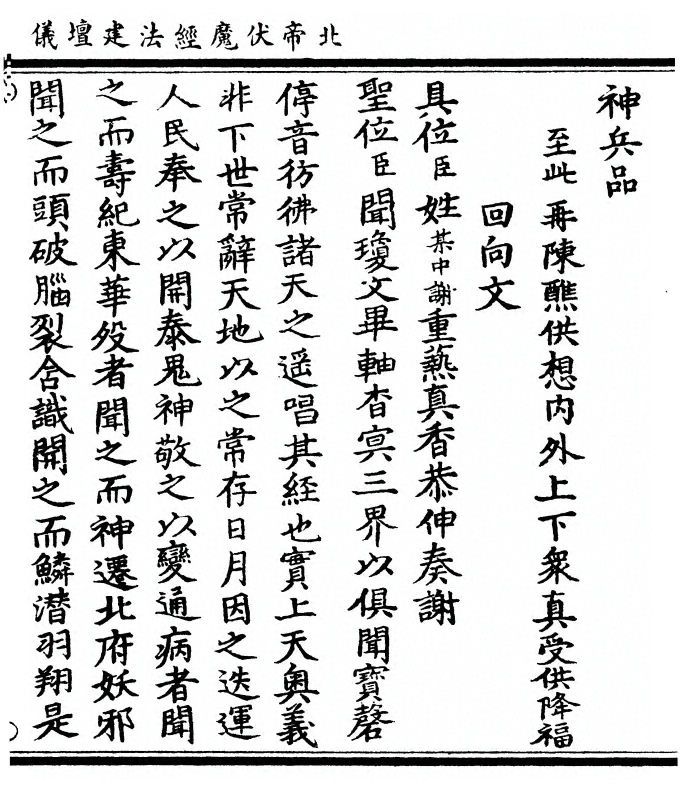 北帝伏魔經法建壇儀
神兵品
至此再陳醮供想內外上下衆真受供降福
回向文
具位臣姓某中謝重爇真香恭伸奏謝
聖位臣聞瓊文畢軸杳冥三界以俱聞寶磬
停音彷彿諸天之遥唱其經也實上天奧義
非下世常辭天地以之常存日月因之迭運
人民奉之以開泰鬼神敬之以變通病者聞
之而壽紀東華殁者聞之而神遷北府妖邪
聞之而頭破腦裂含識開之而鱗潜羽翔是